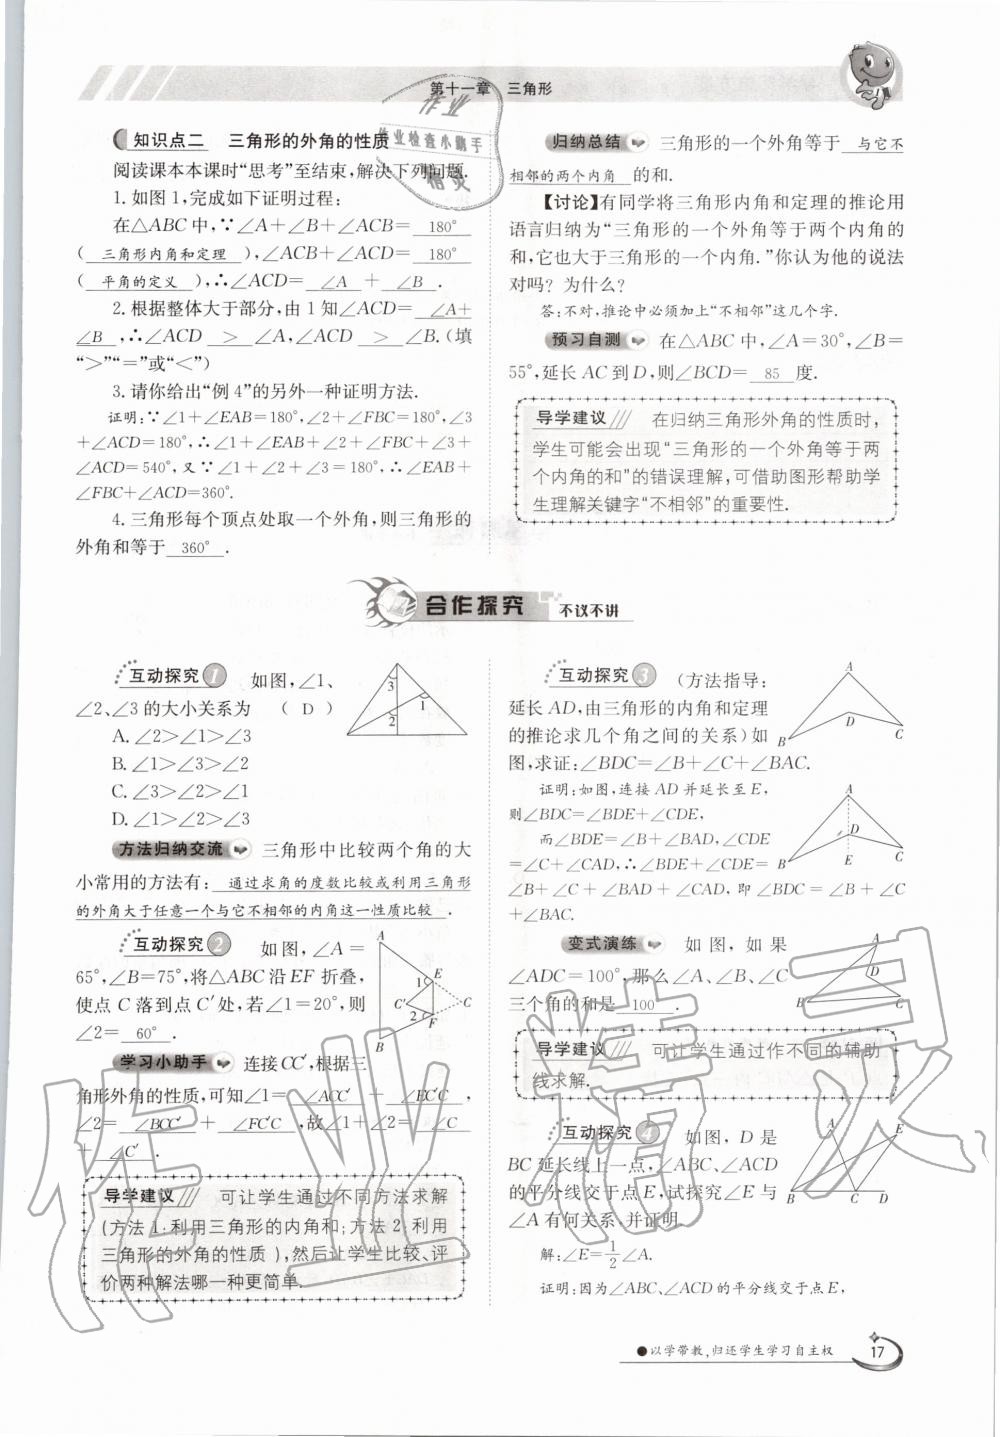 第十一章 三角形
作业
作业检查小助手
精灵
知识点二 三角形的外角的性质
阅读课本本课时“思考”至结束,解决下列问题.
1.如图1,完成如下证明过程:
在△ABC中,∵∠A+∠B+∠ACB= 180°
( 三角形内角和定理 ),∠ACB+∠ACD= 180°
( 平角的定义 ),∴∠ACD= ∠A + ∠B .
2.根据整体大于部分,由1知∠ACD= ∠A+
∠B ,∴∠ACD > ∠A,∠ACD > ∠B.(填
“>”“=”或“<”)
3.请你给出“例4”的另外一种证明方法.
证明:∵∠1+∠EAB=180°,∠2+∠FBC=180°,∠3
+∠ACD=180°,∴∠1+∠EAB+∠2+∠FBC+∠3+
∠ACD=540°,又∵∠1+∠2+∠3=180°,∴∠EAB+
∠FBC+∠ACD=360°.
4.三角形每个顶点处取一个外角,则三角形的
外角和等于 360° .
归纳总结 三角形的一个外角等于 与它不
相邻的两个内角 的和.
【讨论】有同学将三角形内角和定理的推论用
语言归纳为“三角形的一个外角等于两个内角的
和,它也大于三角形的一个内角.”你认为他的说法
对吗?为什么?
答:不对,推论中必须加上“不相邻”这几个字.
预习自测 在△ABC中,∠A=30°,∠B=
55°,延长AC到D,则∠BCD= 85 度.
导学建议 在归纳三角形外角的性质时,
学生可能会出现“三角形的一个外角等于两
个内角的和”的错误理解,可借助图形帮助学
生理解关键字“不相邻”的重要性.
合作探究 不议不讲
互动探究1 如图,∠1、
∠2、∠3的大小关系为 ( D )
A.∠2>∠1>∠3
B.∠1>∠3>∠2
C.∠3>∠2>∠1
D.∠1>∠2>∠3
3
1
2
方法归纳交流 三角形中比较两个角的大
小常用的方法有: 通过求角的度数比较或利用三角形
的外角大于任意一个与它不相邻的内角这一性质比较 .
互动探究2 如图,∠A=
65°,∠B=75°,将△ABC沿EF折叠,
使点C落到点C′处,若∠1=20°,则
∠2= 60° .
A
E
1
C′
C
2
F
B
学习小助手 连接CC′,根据三
角形外角的性质,可知∠1= ∠ACC′ + ∠EC′C ,
∠2= ∠BCC′ + ∠FC′C ,故∠1+∠2= ∠C
+ ∠C′ .
导学建议 可让学生通过不同方法求解
(方法1:利用三角形的内角和;方法2:利用
三角形的外角的性质),然后让学生比较、评
价两种解法哪一种更简单.
互动探究3 (方法指导:
延长AD,由三角形的内角和定理
的推论求几个角之间的关系)如
图,求证:∠BDC=∠B+∠C+∠BAC.
A
D
B
C
证明:如图,连接AD并延长至E,
则∠BDC=∠BDE+∠CDE,
而∠BDE=∠B+∠BAD,∠CDE
=∠C+∠CAD,∴∠BDE+∠CDE=
∠B+∠C+∠BAD+∠CAD,即∠BDC=∠B+∠C
+∠BAC.
A
D
B
E
C
变式演练 如图,如果
∠ADC=100°,那么∠A、∠B、∠C
三个角的和是 100 .
A
D
B
C
导学建议 可让学生通过作不同的辅助
线求解.
互动探究4 如图,D是
BC延长线上一点,∠ABC、∠ACD
的平分线交于点E,试探究∠E与
∠A有何关系,并证明.
A
E
B
C
D
解:∠E=1/2∠A.
证明:因为∠ABC、∠ACD的平分线交于点E,
●以学带教,归还学生学习自主权
17
作业精灵